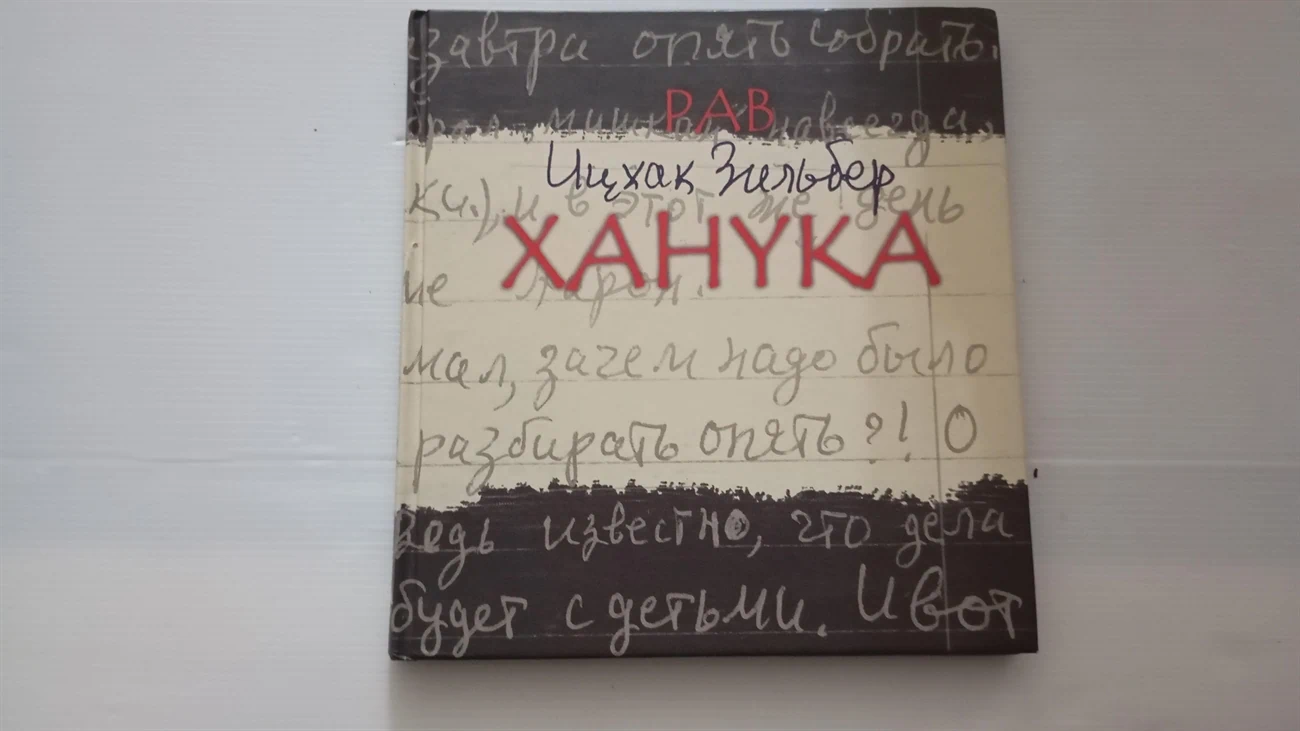 завтра опять собрать.
РАВ
навсегда,
Ицхак Зильбер
ки.), и в этот же день
ХАНУКА
ие
мал, зачем надо было
разбирать опять?! О
ведь известно, что дела
будет с детьми. И вот